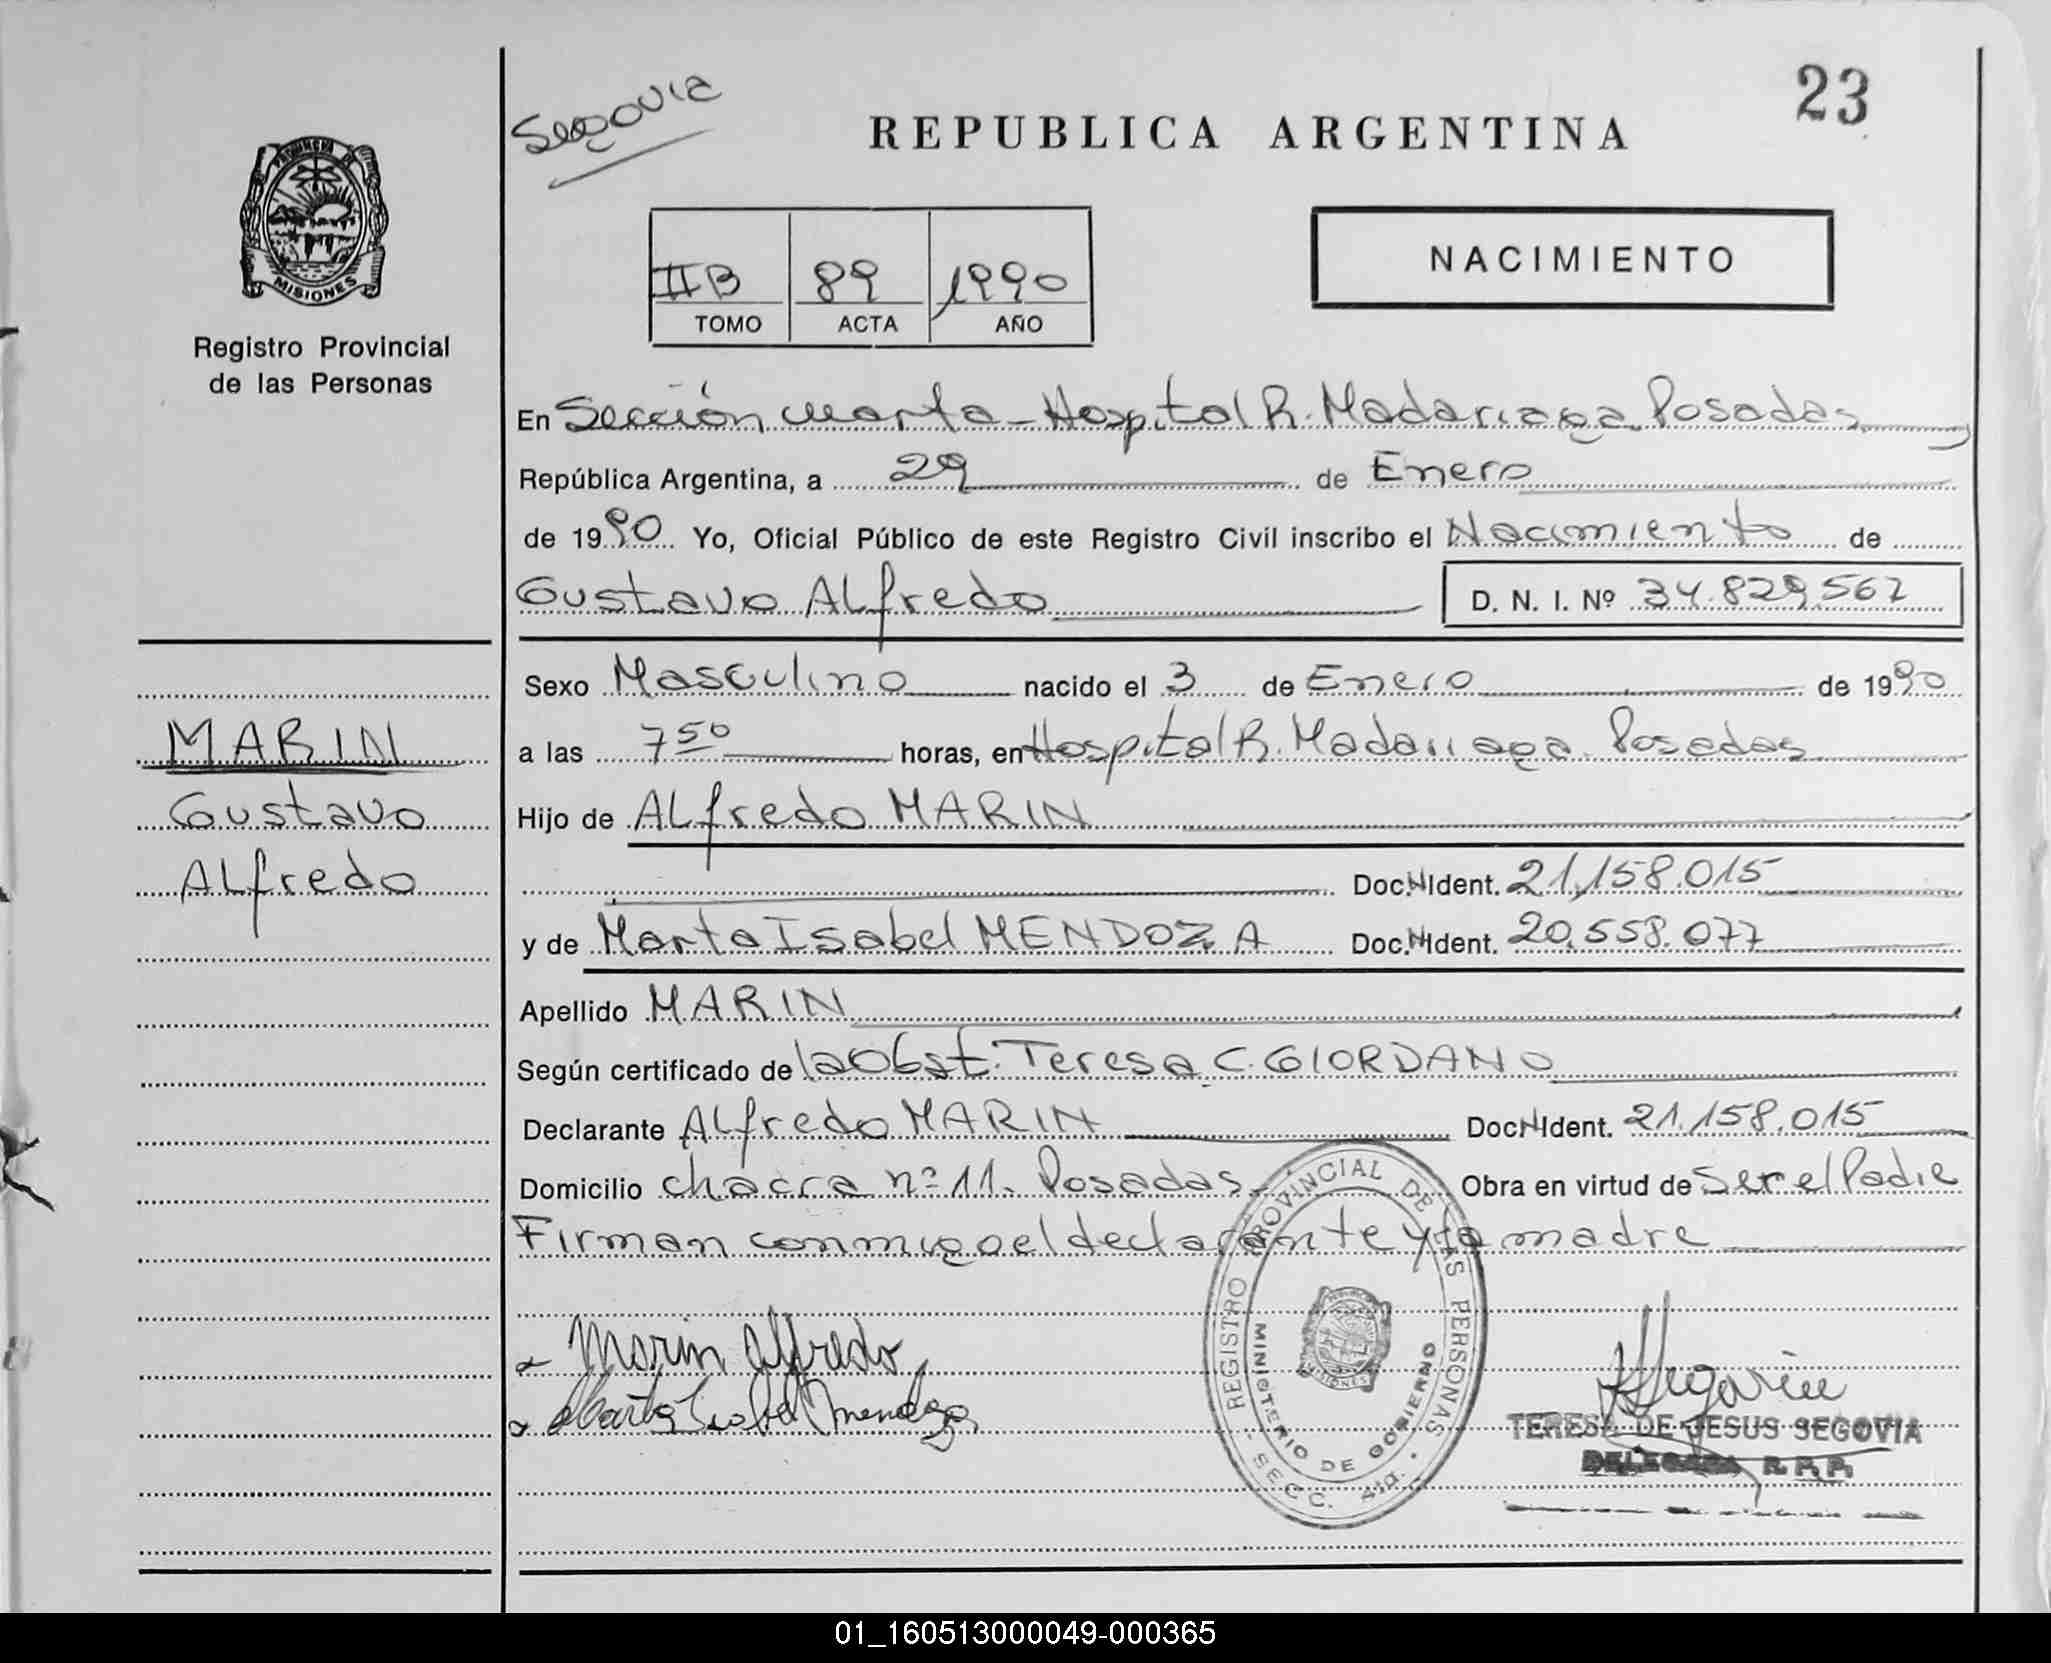 23
Segovia
REPUBLICA ARGENTINA
PROVINCIA DE
MISIONES
Registro Provincial
de las Personas
NACIMIENTO
IIB 89 1990
TOMO ACTA AÑO
En Sección cuarta - Hospital R. Madariaga. Posadas
República Argentina, a 29 de Enero
de 1990 Yo, Oficial Público de este Registro Civil inscribo el Nacimiento de
Gustavo ALfredo D. N. I. Nº 34.829.567
Sexo Masculino nacido el 3 de Enero de 1990
MARIN
Gustavo
ALfredo
a las 7 50 horas, en Hospital R. Madariaga. Posadas
Hijo de ALfredo MARIN
Doc. N Ident. 21,158.015
y de Marta Isabel MENDOZA Doc. N Ident. 20.558.077
Apellido MARIN
Según certificado de la Obst. Teresa C. GIORDANO
Declarante ALfredo MARIN Doc N Ident. 21.158.015
Domicilio chacra nº 11. Posadas Obra en virtud de ser el Padre
Firman conmigo el declarante y la madre
Marin Alfredo
Marta Isabel Mendoza
REGISTRO PROVINCIAL DE LAS PERSONAS
MINISTERIO DE GOBIERNO
SECC. 4ta.
TERESA DE JESUS SEGOVIA
DELEGADA R. P. P.
01_160513000049-000365